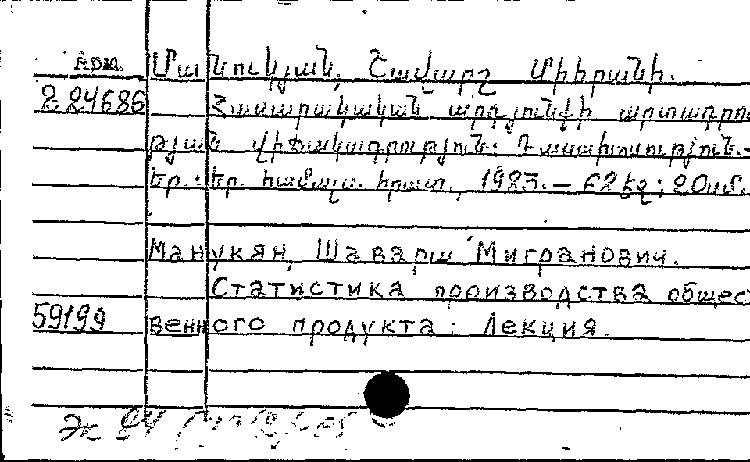 Арм. Մանուկյան, Շավարշ Միհրանի.
224686 Հասարակական արդյունքի արտադրու
թյան վիճակագրություն: Դասախոսություն.-
Եր.: Եր. համալս. հրատ., 1983. — 62 էջ; 20 սմ.
Манукян, Шаварш Мигранович.
Статистика производства общест
59199 венного продукта: Лекция.
Эк 24